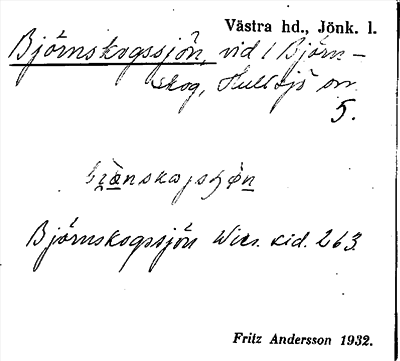 Västra hd., Jönk. l.
Björnskogssjön, vid l Björn-
skog, Hultsjö sn.
5.
Björnskogssjön Wies. sid. 263.
Fritz Andersson 1932.